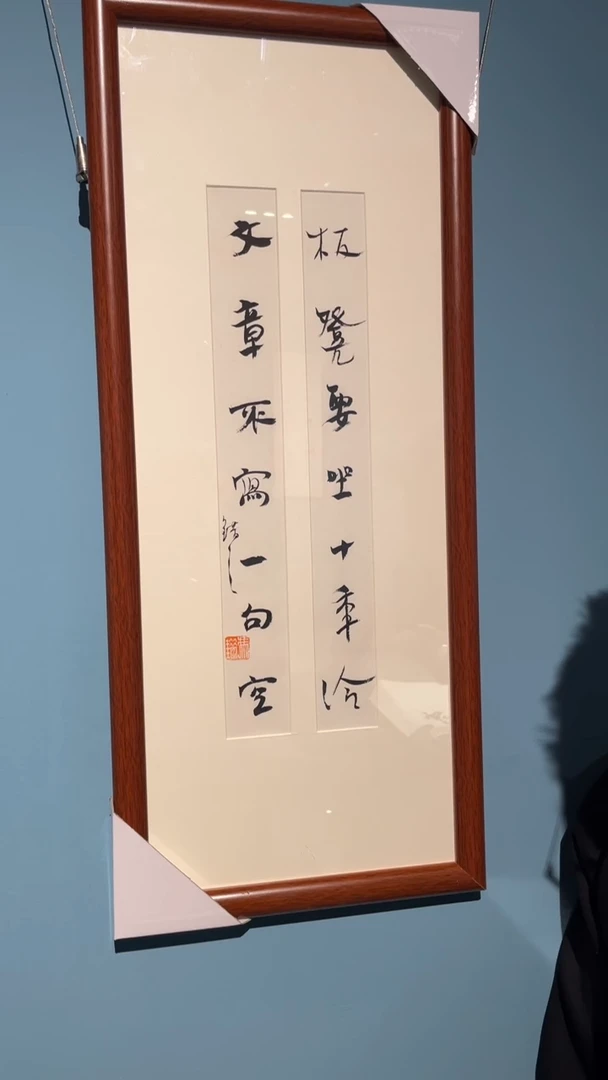 板凳要坐十年冷
文章不寫一句空